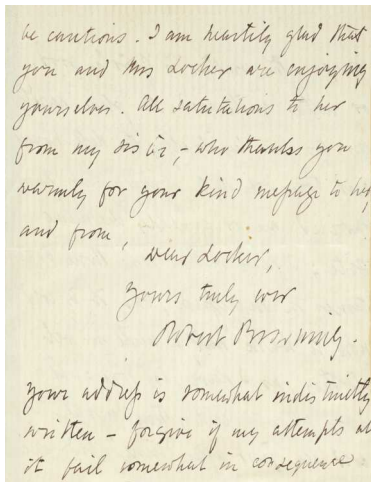 be cautious. I am heartily glad that
you and Mrs Locker are enjoying
yourselves. All salutations to her
from my sister, - who thanks you
warmly for your kind message to her,
and from,
Dear Locker,
Yours truly ever
Robert Browning.
Your address is somewhat indistinctly
written - forgive if my attempts at
it fail somewhat in consequence